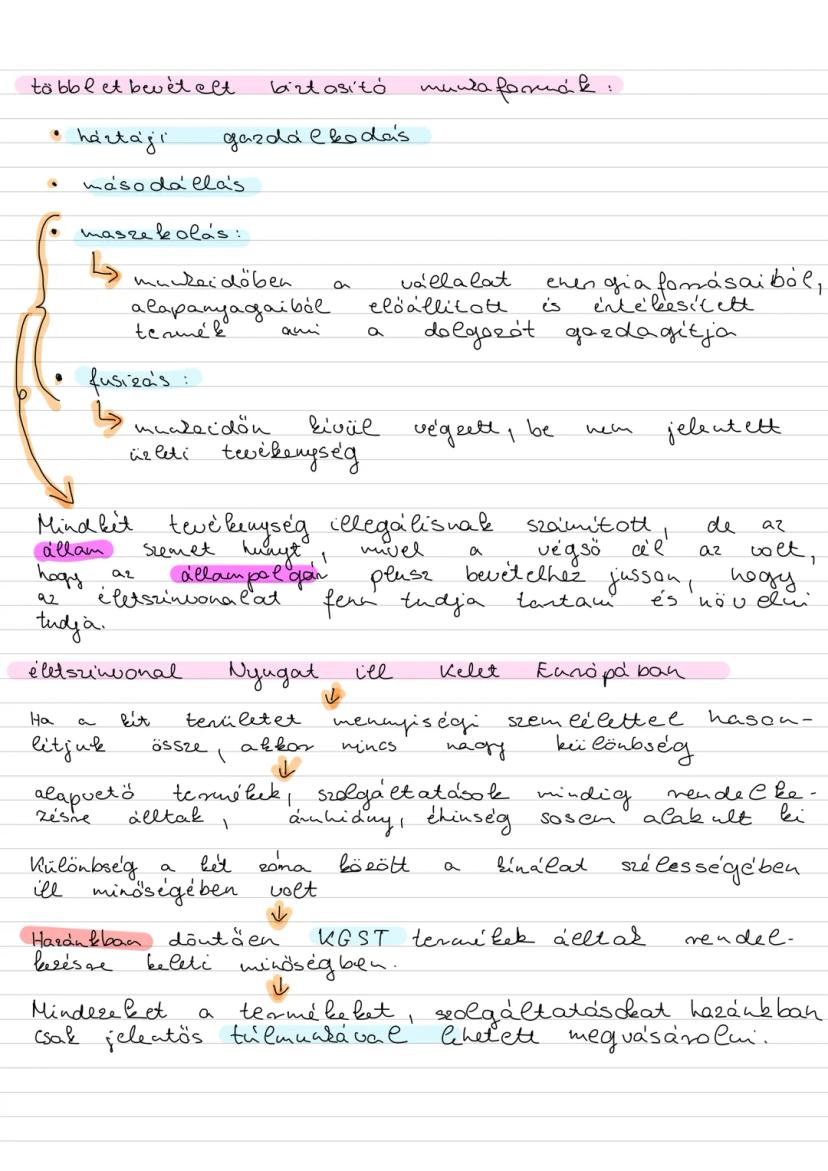 többletbevételt biztosító munkaformák:
• háztáji gazdálkodás
• másodállás
• maszekolás:
↳ munkaidőben a vállalat energiaforrásaiból,
alapanyagaiból előállított és értékesített
termék ami a dolgozót gazdagítja
• fusizás:
↳ munkaidőn kívül végzett, be nem jelentett
üzleti tevékenység
Mindkét tevékenység illegálisnak számított, de az
állam szemet hunyt, mivel a végső cél az volt,
hogy az állampolgár plusz bevételhez jusson, hogy
az életszínvonalat fenn tudja tartani és növelni
tudja.
életszínvonal Nyugat ill Kelet Európában
Ha a két területet mennyiségi szemlélettel hason-
lítjuk össze, akkor nincs nagy különbség
alapvető termékek, szolgáltatások mindig rendelke-
zésre álltak, áruhiány, éhínség sosem alakult ki
Különbség a két zóna között a kínálat szélességében
ill minőségében volt
Hazánkban döntően KGST termékek álltak rendel-
kezésre keleti minőségben.
Mindezeket a termékeket, szolgáltatásokat hazánkban
csak jelentős túlmunkával lehetett megvásárolni.